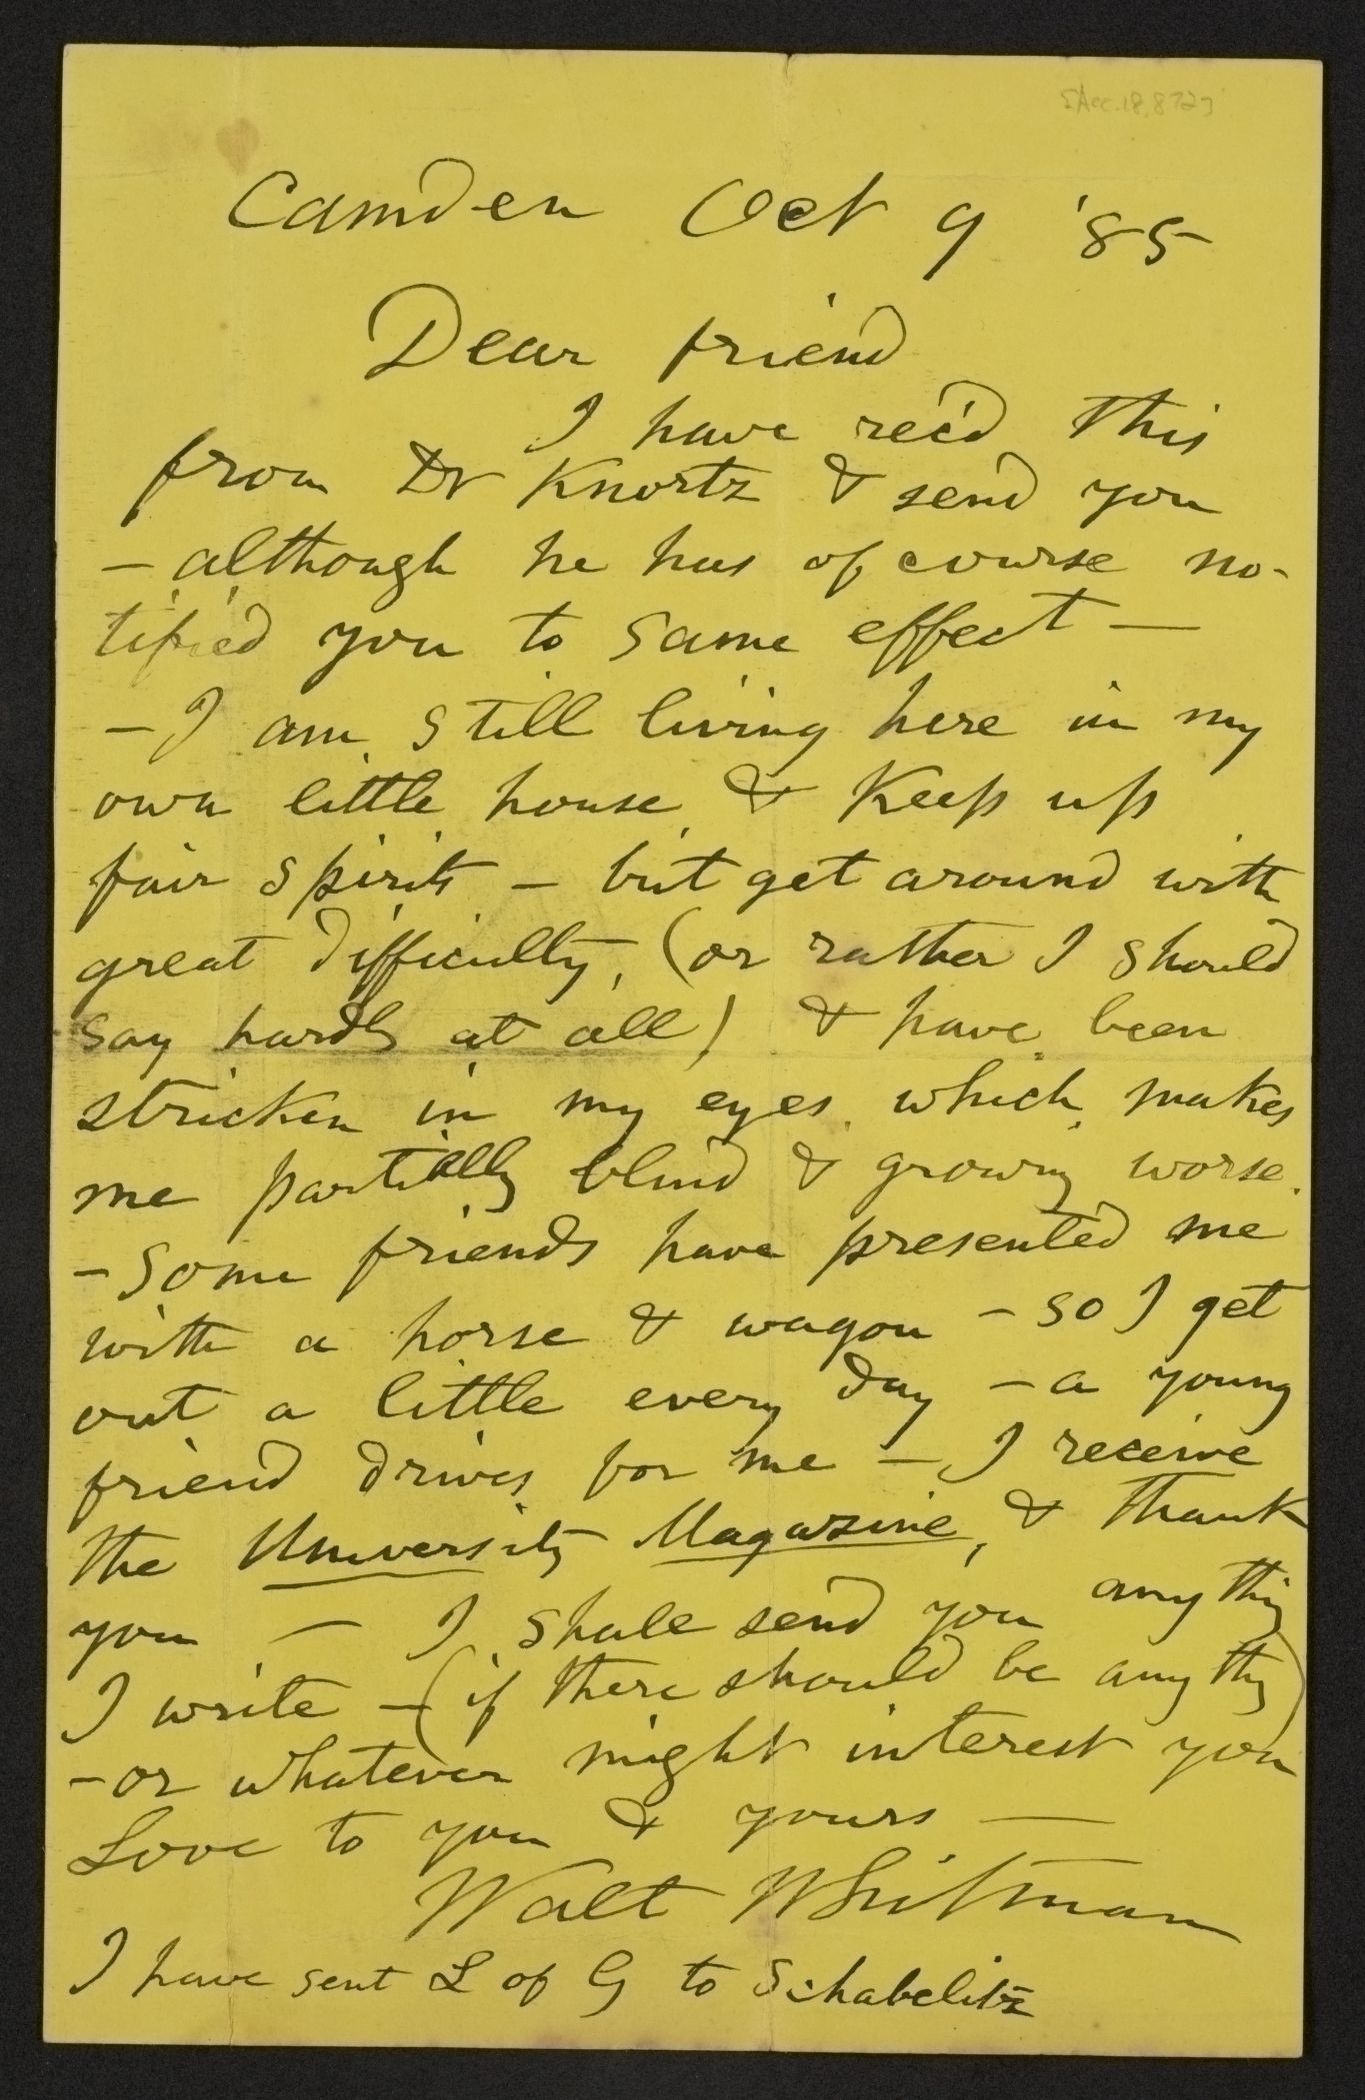 [Acc.18,872]
Camden Oct 9 '85
Dear friend
I have rec'd this
from Dr Knortz & send you
– although he has of course no-
tified you to same effect –
– I am still living here in my
own little house & keep up
fair spirits – but get around with
great difficulty, (or rather I should
say hardly at all) & have been
stricken in my eyes which makes
me partially blind & growing worse.
– Some friends have presented me
with a horse & wagon – so I get
out a little every day – a young
friend drives for me – I receive
the University Magazine, & thank
you – I shall send you any thing
I write – (if there should be any thg)
– or whatever might interest you
Love to you & yours –
Walt Whitman
I have sent L of G to Schabelitz